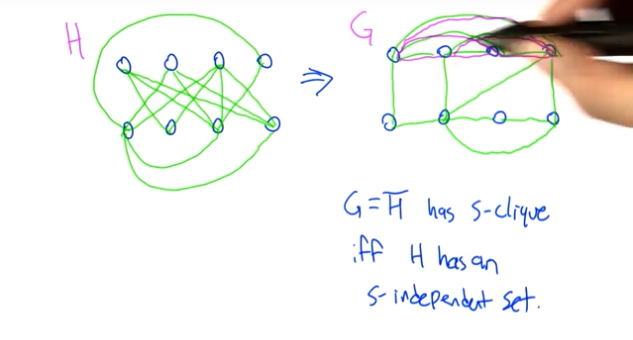 H
⇒
G
G = H̅ has s-clique
iff H has an
s-independent set.